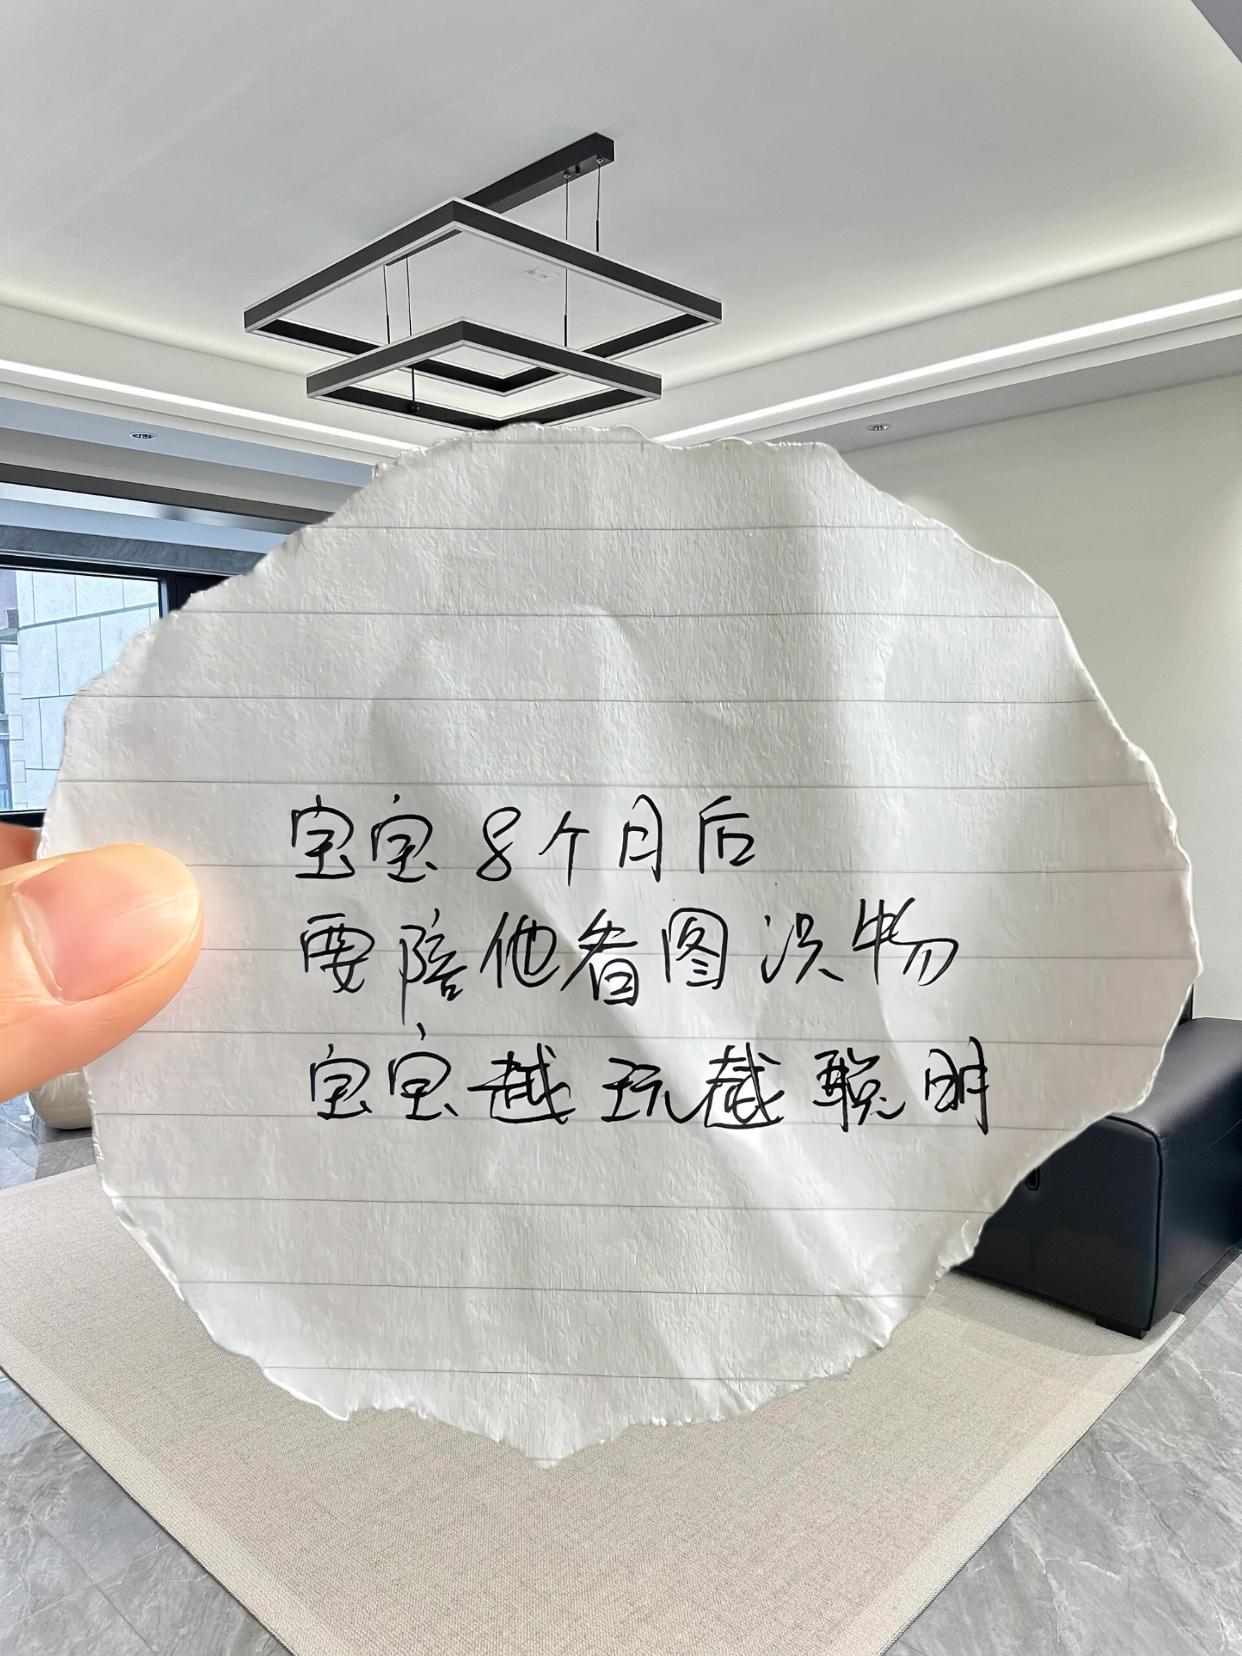 宝宝8个月后
要陪他看图识物
宝宝越玩越聪明